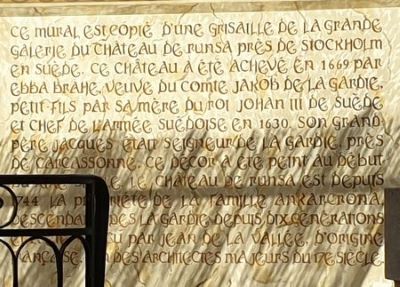 CE MURAL EST COPIÉ D'UNE GRISAILLE DE LA GRANDE
GALERIE DU CHÂTEAU DE RUNSA PRÈS DE STOCKHOLM
EN SUÈDE. CE CHÂTEAU A ÉTÉ ACHEVÉ EN 1669 PAR
EBBA BRAHE, VEUVE DU COMTE JAKOB DE LA GARDIE,
PETIT FILS PAR SA MÈRE DU ROI JOHAN III DE SUÈDE
ET CHEF DE L'ARMÉE SUÉDOISE EN 1630. SON GRAND
PÈRE JACQUES ÉTAIT SEIGNEUR DE LA GARDIE, PRÈS
DE CARCASSONNE. CE DÉCOR A ÉTÉ PEINT AU DÉBUT
LE CHÂTEAU DE RUNSA EST DEPUIS
1744 LA PROPRIÉTÉ DE LA FAMILLE ANKARCRONA,
DESCENDANT DES LA GARDIE DEPUIS DIX GÉNÉRATIONS
PAR JEAN DE LA VALLÉE, D'ORIGINE
FRANÇAISE DES ARCHITECTES MAJEURS DU 17E SIÈCLE.